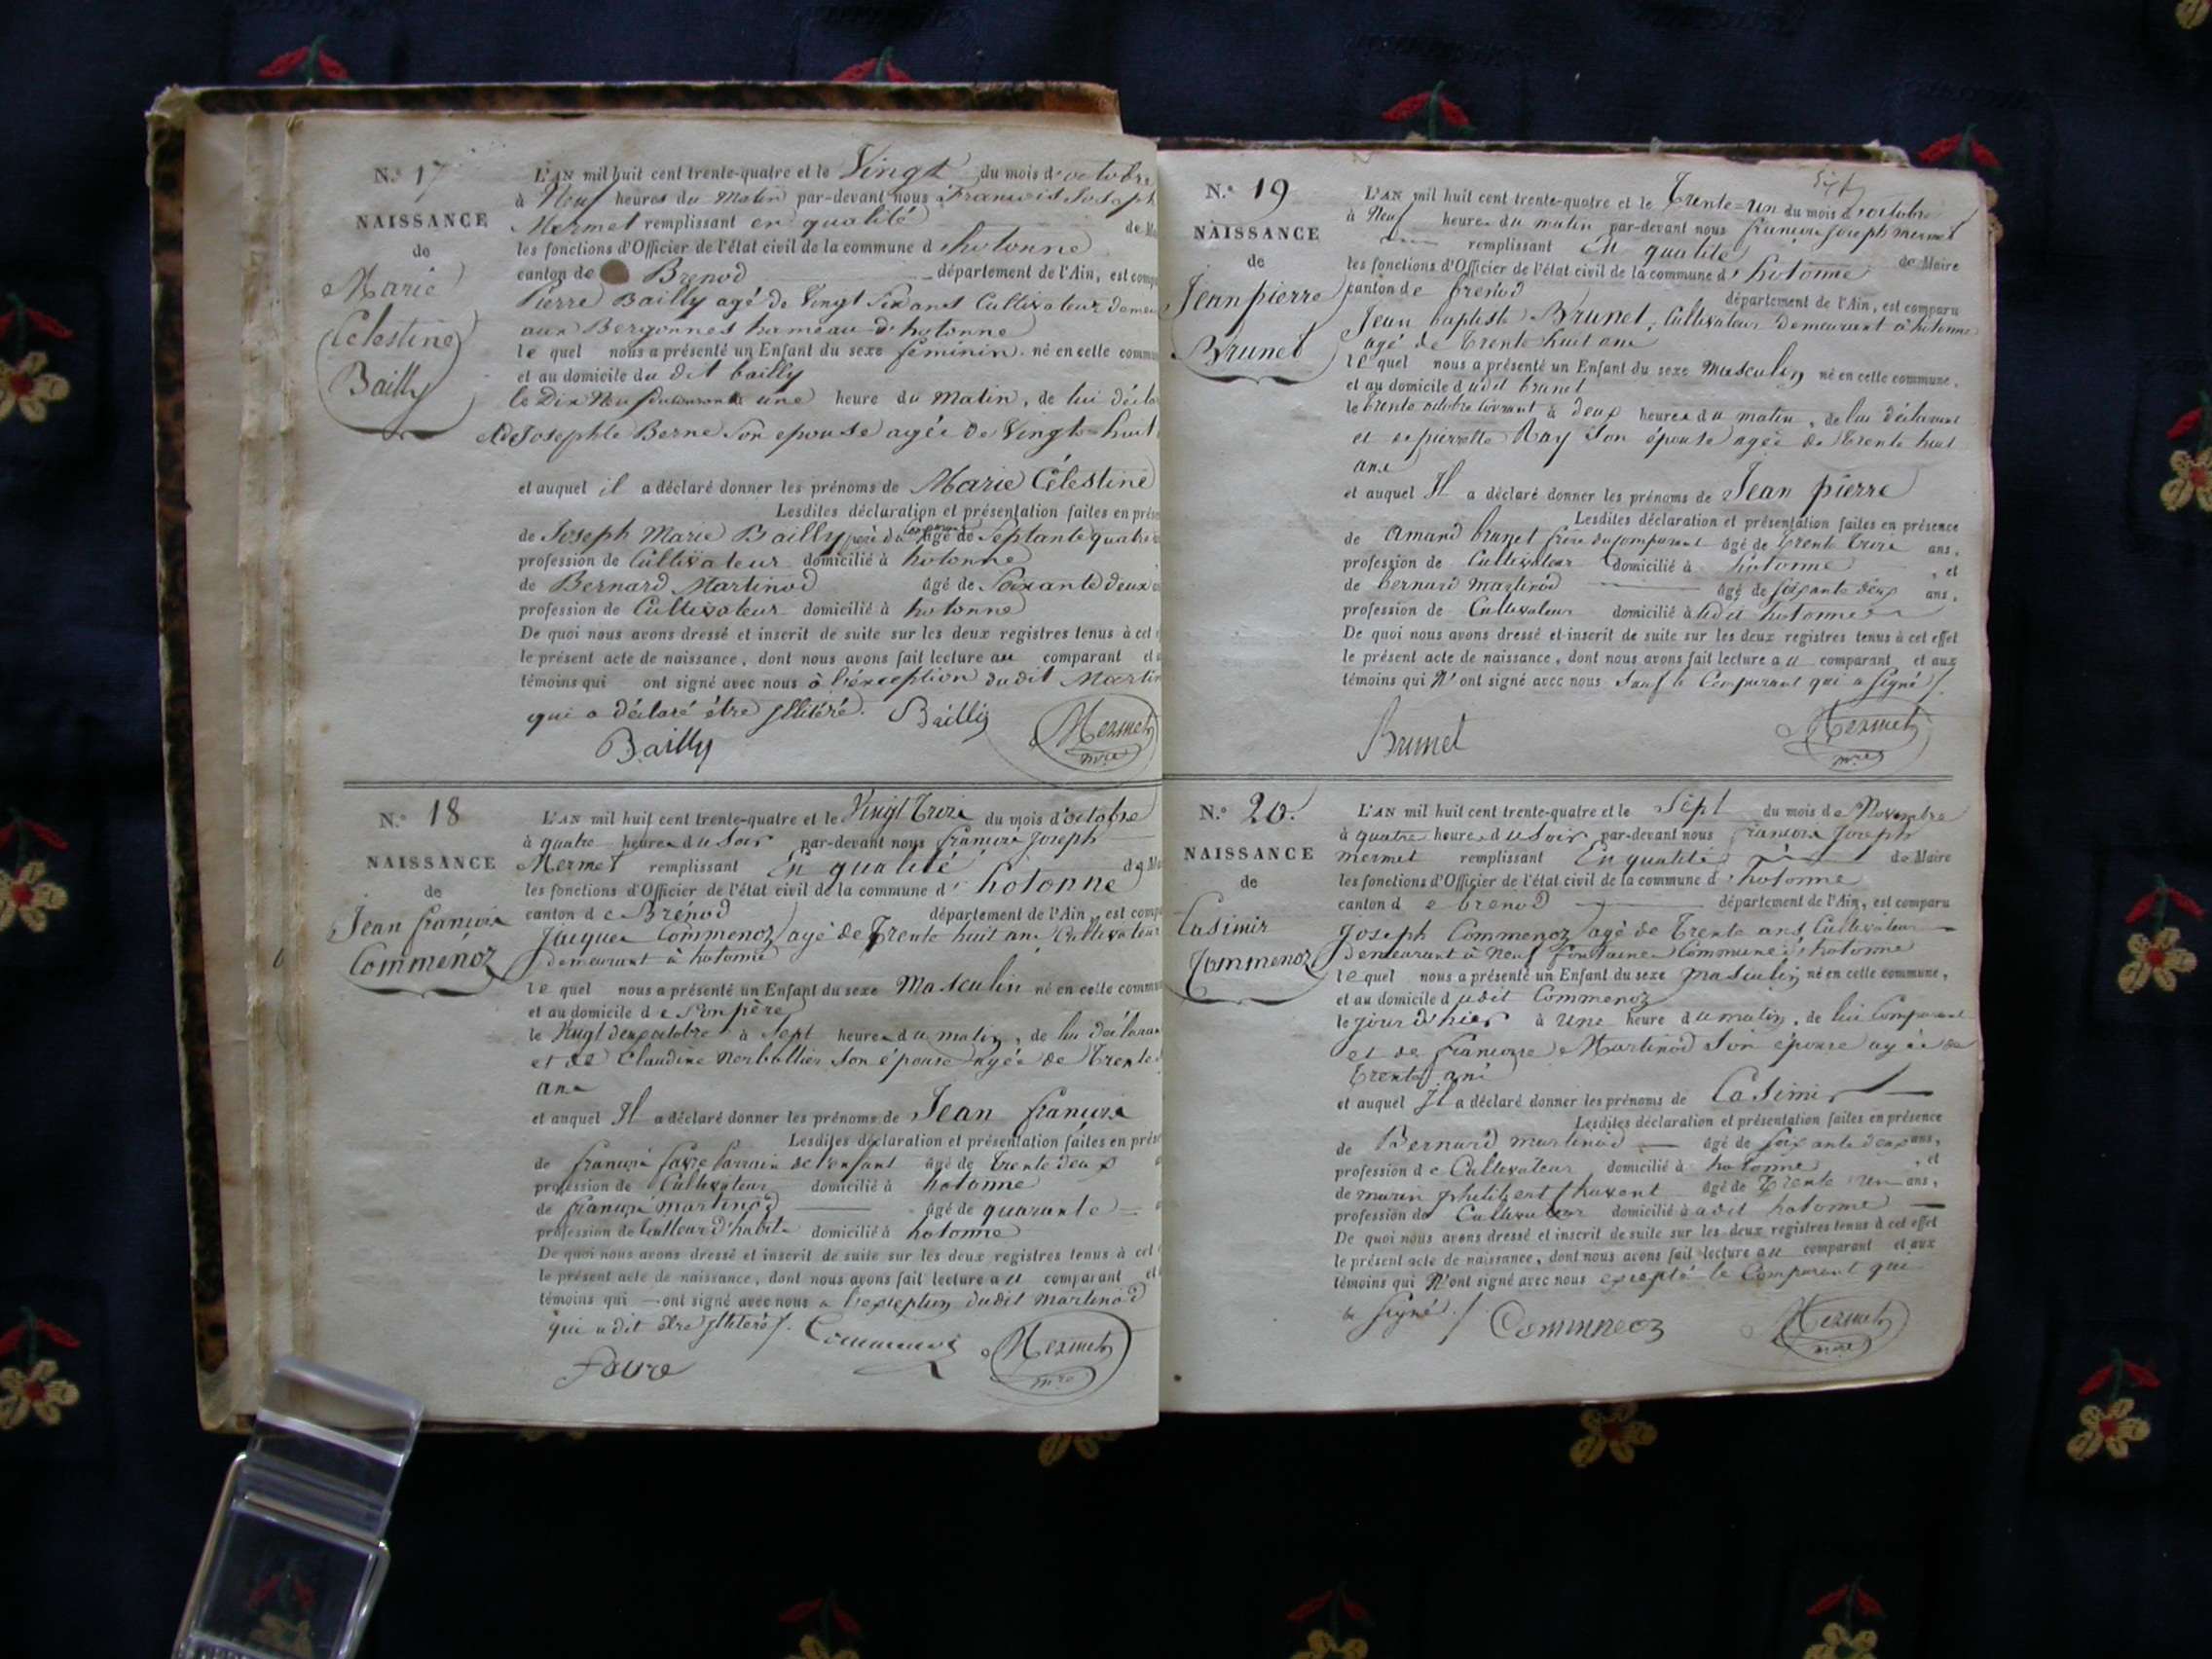 N.° 17
NAISSANCE
de
Marie
Celestine
Bailly
L'AN mil huit cent trente-quatre et le Vingt du mois d'octobre
à Neuf heures du Matin par-devant nous Francois Joseph
Mermet remplissant en qualité de
les fonctions d'Officier de l'état civil de la commune d'hotonne
canton de Brenod département de l'Ain, est
Pierre Bailly agé de Vingt Six ans Cultivateur
aux Bergonnes hameau d'hotonne
le quel nous a présenté un Enfant du sexe féminin né en cette
et au domicile du dit bailly
le Dix Neuf du courant à une heure du Matin, de lui
et de Josephte Berne Son epouse agée de Vingt-huit
et auquel il a déclaré donner les prénoms de Marie Célestine
Lesdites déclaration et présentation faites en
de Joseph Marie Bailly père du comparant âgé de Septante quatre
profession de Cultivateur domicilié à hotonne
de Bernard Martinod âgé de Soixante deux
profession de Cultivateur domicilié à hotonne
De quoi nous avons dressé et inscrit de suite sur les deux registres tenus à cet
le présent acte de naissance, dont nous avons fait lecture au comparant et
témoins qui ont signé avec nous à l'exception dudit
qui a déclaré être illitéré. Bailly
Bailly Mermet mre
N.° 18
NAISSANCE
de
Jean françois
Commenoz
L'AN mil huit cent trente-quatre et le Vingt trois du mois d'octobre
à quatre heures du Soir par-devant nous françois Joseph
Mermet remplissant En qualité de
les fonctions d'Officier de l'état civil de la commune d'hotonne
canton de Brénod département de l'Ain, est
Jacques Commenoz agé de Trente huit ans Cultivateur
demeurant à hotonne
le quel nous a présenté un Enfant du sexe Masculin né en cette
et au domicile de Son père
le Vingt deux octobre à Sept heures du matin, de lui
et de Claudine Son épouse agée de Trente
ans
et auquel Il a déclaré donner les prénoms de Jean françois
Lesdites déclaration et présentation faites en
de françois favre parrain de l'enfant âgé de trente deux
profession de Cultivateur domicilié à hotonne
de françois martinod âgé de quarante
profession de tailleur d'habits domicilié à hotonne
De quoi nous avons dressé et inscrit de suite sur les deux registres tenus à cet
le présent acte de naissance, dont nous avons fait lecture au comparant et
témoins qui ont signé avec nous a l'exception dudit martinod
qui a dit être illitéré. Mermet
favre mre
N.° 19
NAISSANCE
de
Jean pierre
Brunet
L'AN mil huit cent trente-quatre et le Trente-Un du mois d'octobre
à Neuf heures du matin par-devant nous françois Joseph mermet
remplissant En qualité de Maire
les fonctions d'Officier de l'état civil de la commune d'hotonne
canton de brenod département de l'Ain, est comparu
Jean baptiste Brunet, Cultivateur demeurant à hotonne
agé de Trente huit ans
le quel nous a présenté un Enfant du sexe Masculin né en cette commune,
et au domicile dudit brunet
le trente octobre courant à deux heures du matin, de lui déclarant
et de pierrette Ray son épouse agée de Trente huit
ans
et auquel Il a déclaré donner les prénoms de Jean pierre
Lesdites déclaration et présentation faites en présence
de Amand brunet frère du comparant âgé de trente trois ans,
profession de Cultivateur domicilié à hotonne, et
de bernard martinod âgé de soixante deux ans,
profession de Cultivateur domicilié à udit hotonne
De quoi nous avons dressé et inscrit de suite sur les deux registres tenus à cet effet
le présent acte de naissance, dont nous avons fait lecture au comparant et aux
témoins qui N'ont signé avec nous Sauf le Comparant qui a signé
Brunet Mermet mre
N.° 20.
NAISSANCE
de
Casimir
Commenoz
L'AN mil huit cent trente-quatre et le Sept du mois de Novembre
à quatre heures du Soir par-devant nous françois Joseph
mermet remplissant En qualité de Maire
les fonctions d'Officier de l'état civil de la commune d'hotonne
canton de brenod département de l'Ain, est comparu
Joseph Commenoz agé de Trente ans Cultivateur
demeurant à Neuf fontaine Commune d'hotonne
le quel nous a présenté un Enfant du sexe masculin né en cette commune,
et au domicile dudit Commenoz
le jour d'hier à Une heure du matin, de lui Comparant
et de françoise Martinod Son épouse agée de
trente ans
et auquel Il a déclaré donner les prénoms de Casimir
Lesdites déclaration et présentation faites en présence
de Bernard martinod âgé de soixante deux ans,
profession de Cultivateur domicilié à hotonne, et
de marin philibert âgé de Trente un ans,
profession de Cultivateur domicilié à udit hotonne
De quoi nous avons dressé et inscrit de suite sur les deux registres tenus à cet effet
le présent acte de naissance, dont nous avons fait lecture au comparant et aux
témoins qui N'ont signé avec nous excepté le Comparant qui
a Signé. Commneoz Mermet mre